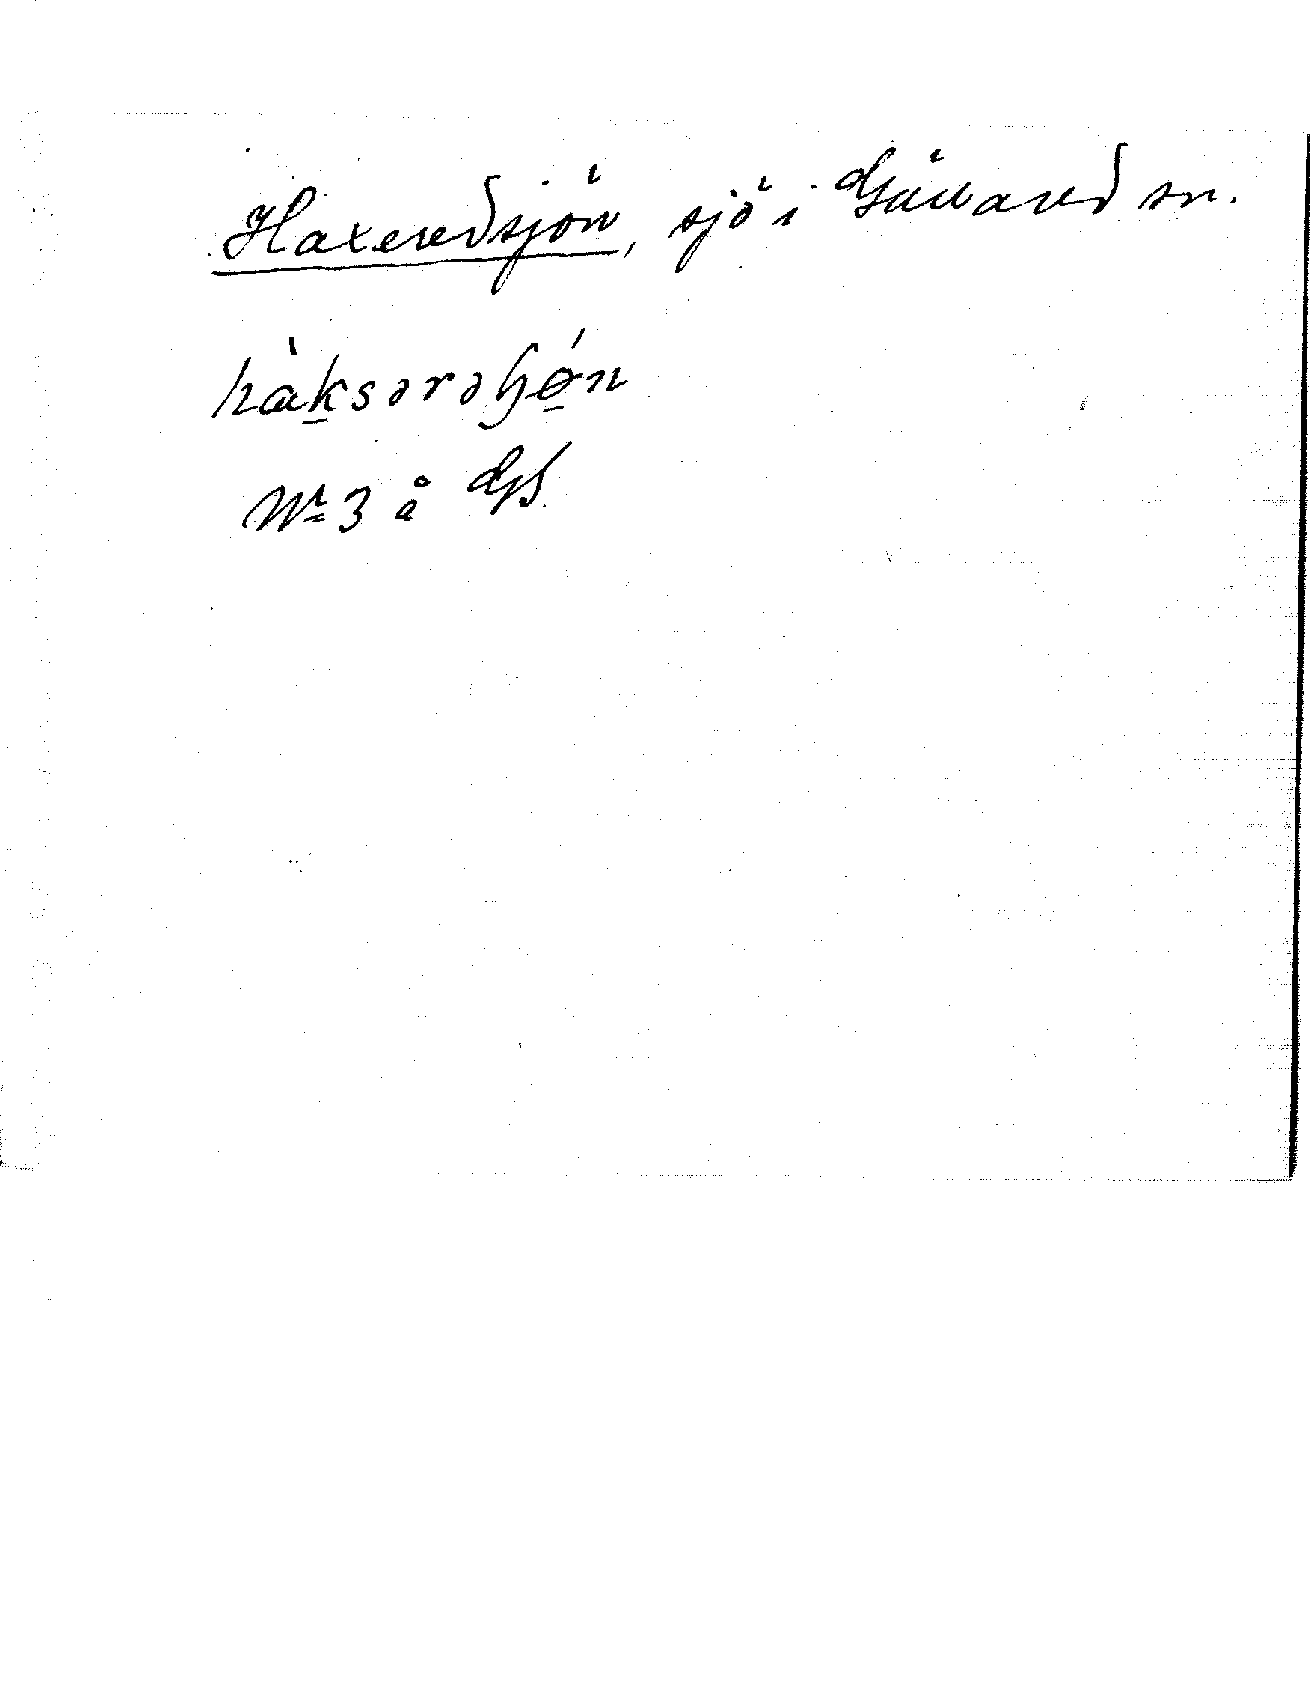 Haxeredsjön, sjö i Gällared sn.
hàksərəɧǿn
№ 3 å